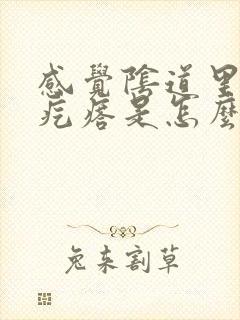 感覺陰道里
疙瘩是怎麼
兔来割草